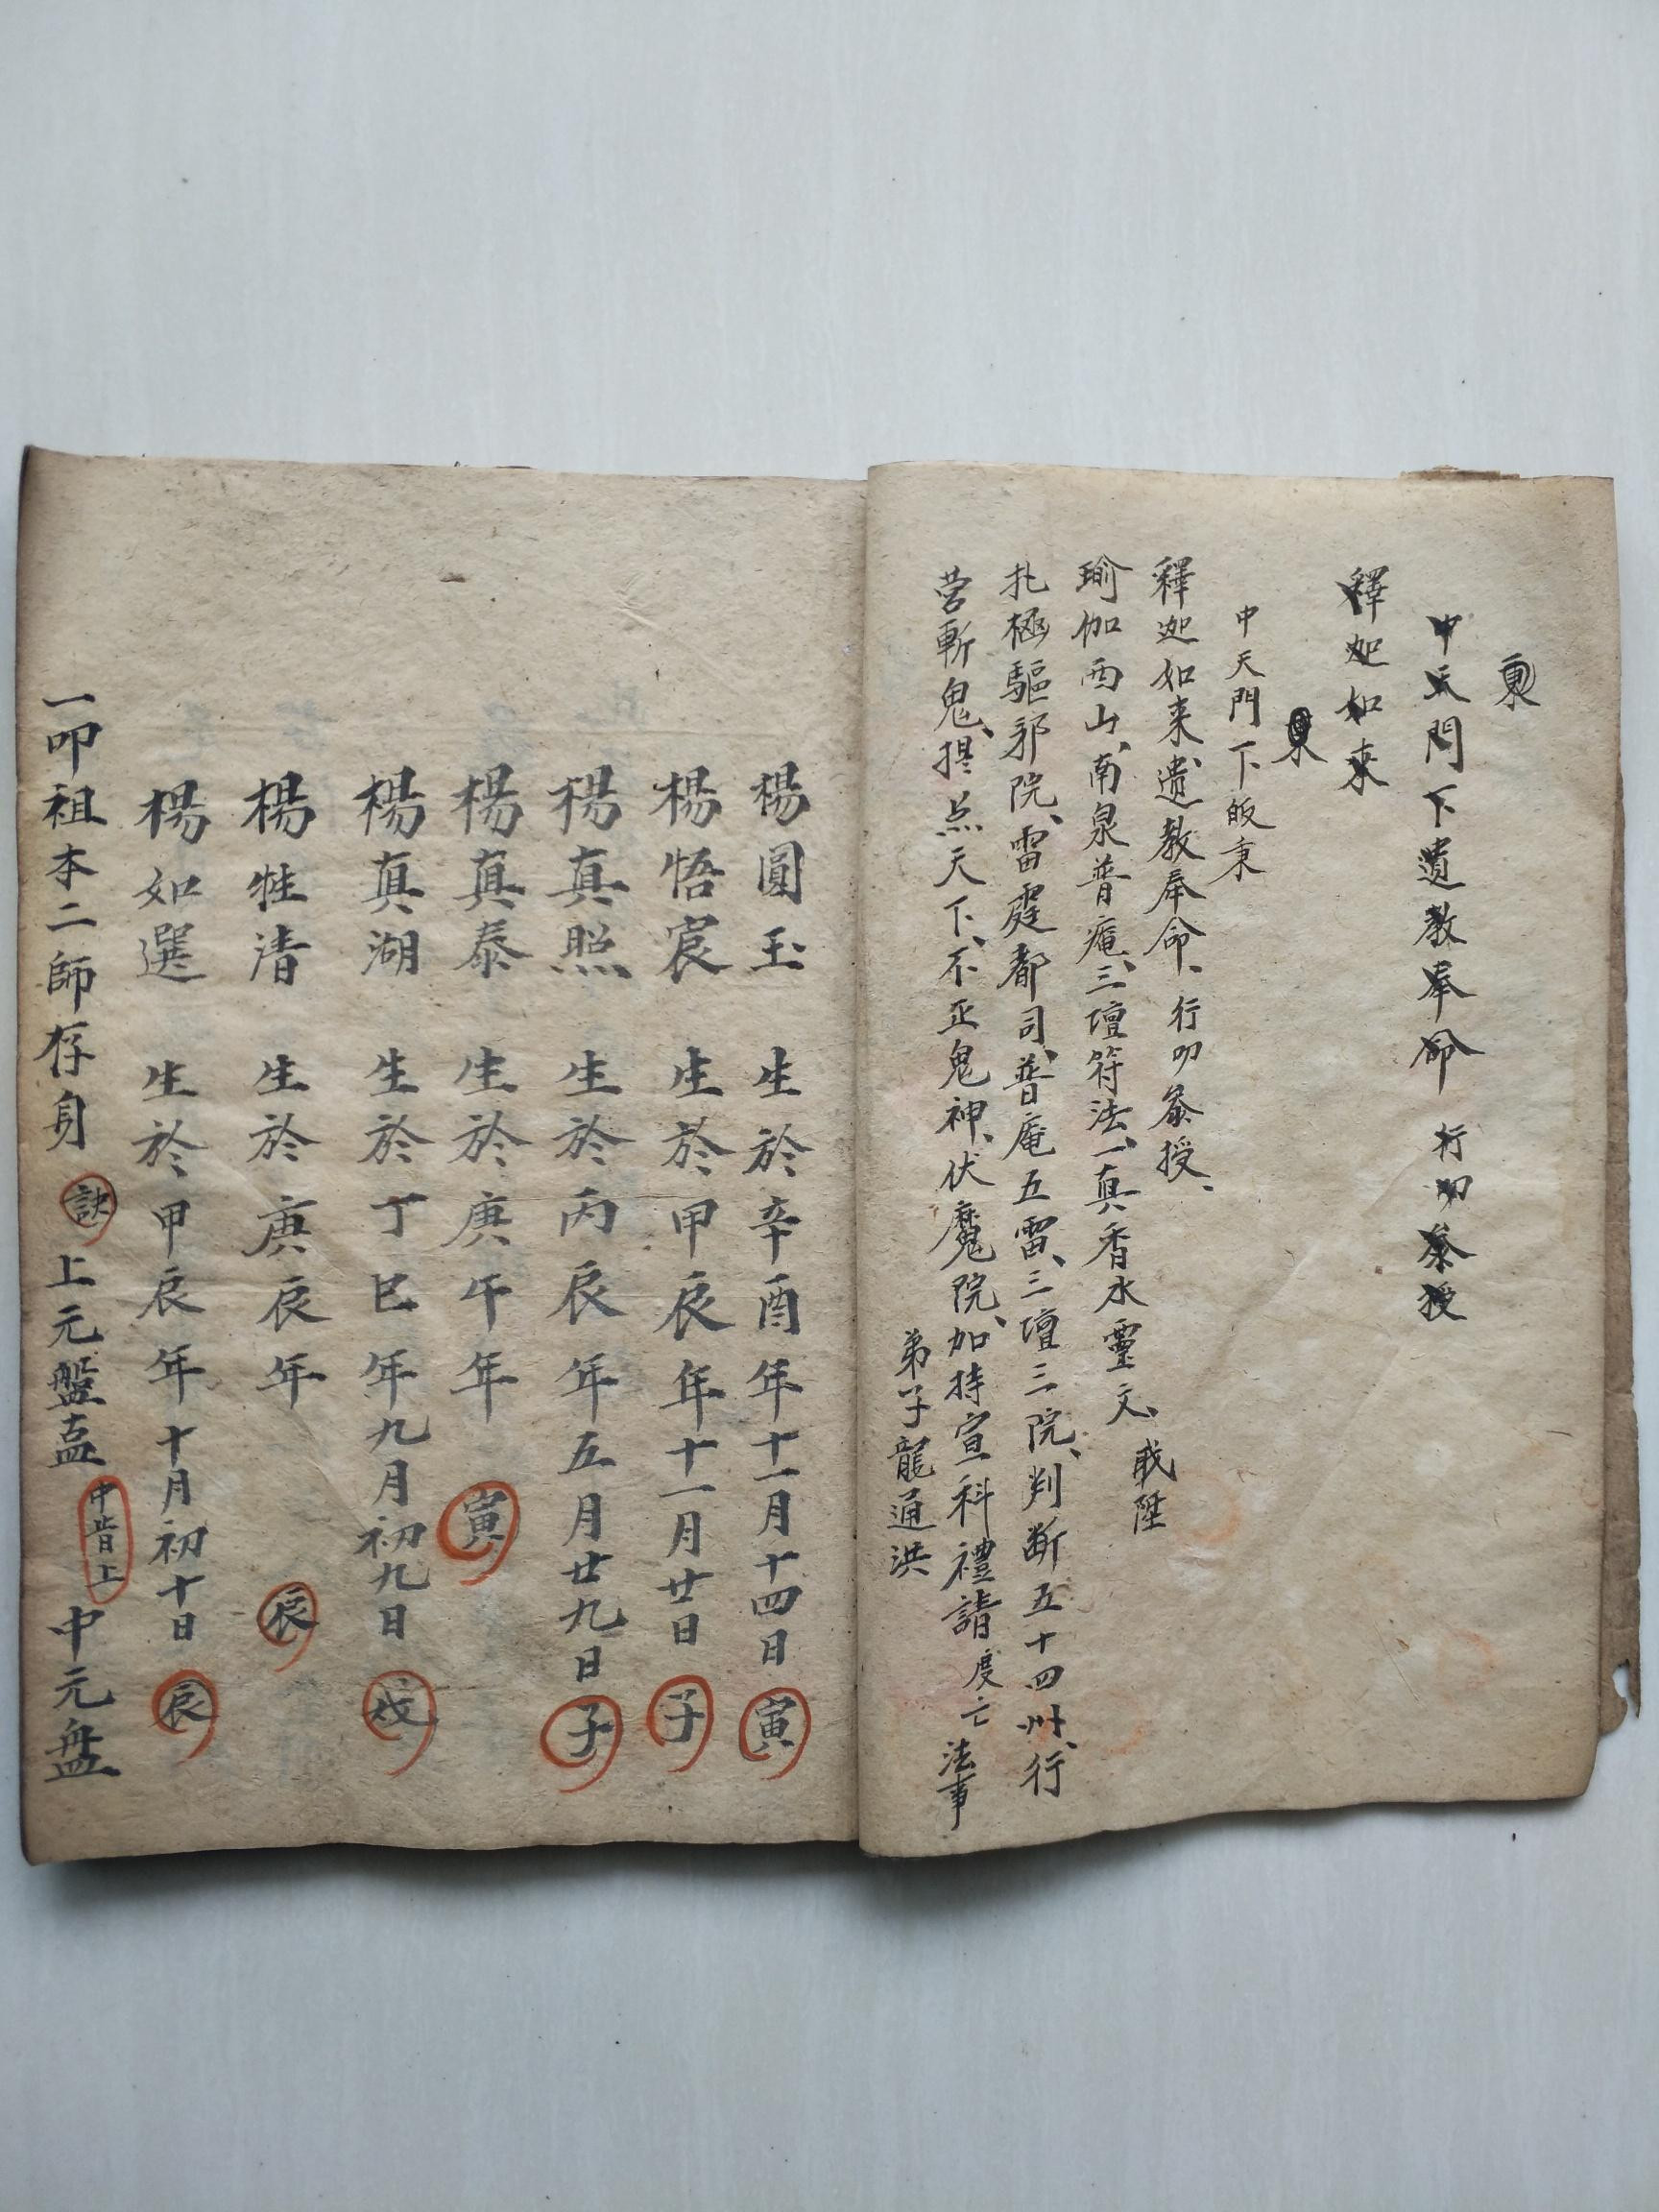 中天門下遺教奉命 行叩叅授
釋迦如來
中天門下皈秉
釋迦如来、遺教奉命、行叩叅授、
瑜伽西山、南泉普庵、三壇符法、一真香水靈文、戢陞
扎極驅邪院、雷霆都司、普庵五雷、三壇三院、判断五十四州、行
营斬鬼、提点天下、不正鬼神、伏魔院、加持宣科禮請度亡法事
弟子龍通洪
楊圓玉 生於辛酉年十一月十四日 寅
楊悟宸 生於甲辰年十一月廿日 子
楊真照 生於丙辰年五月廿九日 子
楊真泰 生於庚午年 寅
楊真湖 生於丁巳年九月初九日 戌
楊性清 生於庚辰年 辰
楊如選 生於甲辰年十月初十日 辰
一叩祖本二師存身 訣 上元盤盍 中指上 中元盤